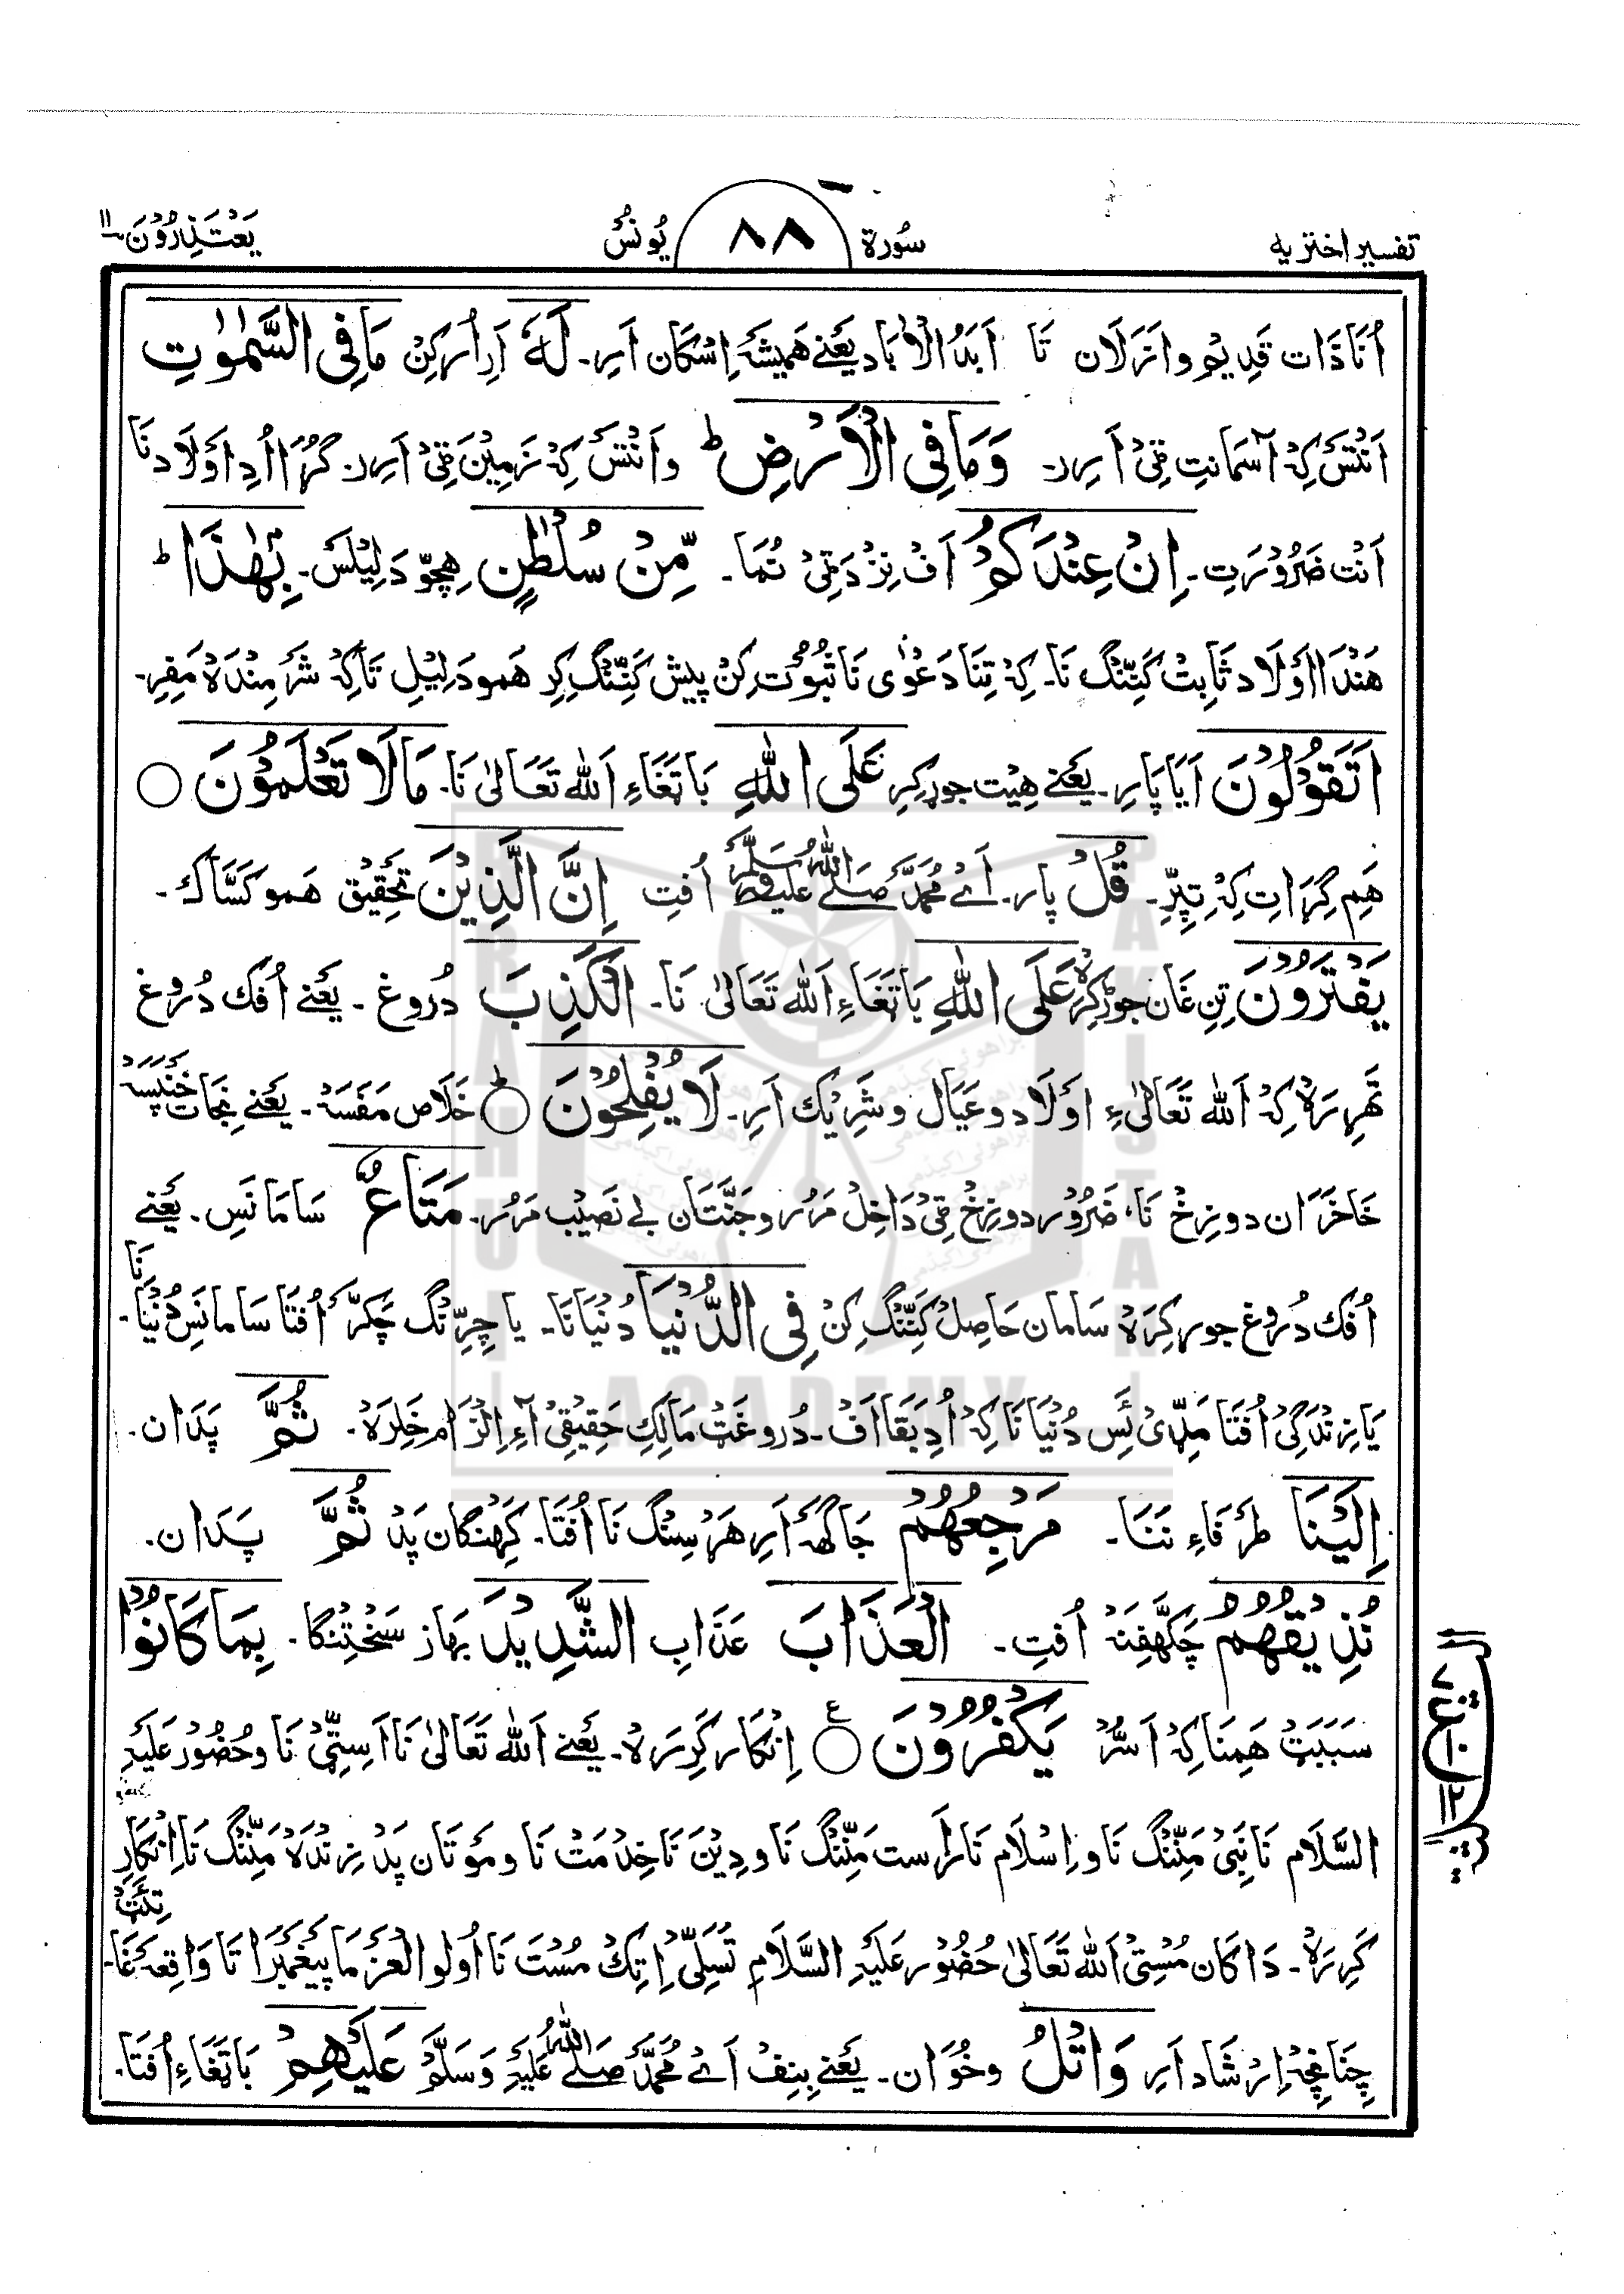 تفسیر اختریه سُورة ٨٨ یُونسُ یَعْتَذِرُوْنَ ١١
اُنَا ذَات قَدِیْم و اَزَلَان تَا اَبَدُ الْاٰبَاد یَعْنے هَمِیْشَہ اِسْکَان اَرِ۔ لَهٗ اَرِ اُرکِنْ مَا فِی السَّمٰوٰتِ
اَنْتَسْ کِہْ آسْمَانتِ قِیْ اَرِر۔ وَمَا فِی الْاَرْضِ ؕ و اَنْتَسْ کِہْ زَمِیْنَ قِیْ اَرِر۔ گُڑَا اُدِ اَوْلَاد نَا
اَنْت ضَرُوْرَتِ۔ اِنْ عِنْدَکُمْ اَفْ نِزْدَ قِیْ نُمَا۔ مِّنْ سُلْطٰنٍۭ هِچّو دَلِیْلَسْ۔ بِهٰذَا ؕ
هَنْدَا اَوْلَاد ثَابِتْ کَنِّنْگ نَا۔ کِہْ تِنَا دَعْوٰی نَا ثُبُوْت کِنْ پیش کَنِّنْگ کِرِ هَمو دَلِیْلِ تَاکِہْ شَرْمِنْدَهْ مَفِرِ۔
اَتَقُوْلُوْنَ اَیَا پَارِ۔ یَعْنے هِیْت جوڑ کِرِ عَلَی اللّٰهِ بَا تَغَاءِ اَللّٰه تَعَالٰی نَا۔ مَا لَا تَعْلَمُوْنَ ○
هَم گِرَاتِ کِہْ تِپِّرِ۔ قُلْ پار۔ اَے مُحَمَّد صَلَّے اللّٰهُ عَلَیْهِ وَسَلَّم اُفتِ اِنَّ الَّذِیْنَ تَحْقِیْق هَمو کَسَّاک۔
یَفْتَرُوْنَ تِن غَان جوڑ کِرَهْ عَلَی اللّٰهِ بَا تَغَاءِ اَللّٰه تَعَالٰی نَا۔ الْکَذِبَ دُروغ۔ یَعْنے اُفک دُروغ
تَهِرِ رَهْ کِہْ اَللّٰه تَعَالٰیءِ اَوْلَاد و عَیَال و شَرِیْک اَرِ۔ لَا یُفْلِحُوْنَ ○ؕ خَلَاص مَفَسَہ۔ یَعْنے نِجَات خَنپَسَہ
خَاخَرَان دوزِخْ نَا، ضَرُوْر دوزِخْ قِیْ دَاخِلْ مَرُر و جَنَّتَان بے نَصِیْب مَرُر۔ مَتَاعٌ سَامَانَسِ۔ یَعْنے
اُفک دُروغ جوڑ کِرَهْ سَامَان حَاصِلْ کَنِّنْگ کِنْ فِی الدُّنْیَا دُنْیَانَا۔ یا چِرِّنْگ چَکرّ اُفتَا سَامَانَسِ دُنْیَا نَا۔
یَا زِنْدَگِیْ اُفتَا مِلّیٔ نَسِ دُنْیَا نَا کِہْ اُدِ بَقَا اَفْ۔ دُروغَتْ مَالِکِ حَقِیْقِیْ آءِ اِلْزَام خَلِرَهْ۔ ثُمَّ پَدَان۔
اِلَیْنَا طَرَفَاءِ نَنَا۔ مَرْجِعُهُمْ جَاگَهْ اَرِ هَرْسِنْگ نَا اُفتَا۔ کَهِنْگان پَدْ ثُمَّ پَدَان۔
نُذِیْقُهُمُ چَکّهِفِنَہْ اُفتِ۔ الْعَذَابَ عَذَابِ الشَّدِیْدَ بهَاز سَخْتِنگَا۔ بِمَا کَانُوْا
سَبَبَتْ هَمِنَا کِہْ اَسُّرْ یَکْفُرُوْنَ ○ع اِنْکَار کَرِرَهْ۔ یَعْنے اَللّٰه تَعَالٰی نَا اَسِتِّیْ نَا و حُضُوْر عَلَیْهِ
السَّلَام نَا نَبِیْ مَنِّنْگ نَا و اِسْلَام نَا رَاست مَنِّنْگ نَا و دِیْن نَا خِدْمَتْ نَا و مَوْتَان پَدْ زِنْدَهْ مَنِّنْگ نَا اِنْکَارِ
کَرِرَهْ۔ دَاکَان مُسْتِیْ اَللّٰه تَعَالٰی حُضُوْر عَلَیْهِ السَّلَامِ تَسَلِّیْ اِتِکْ مُسْتَ نَا اُولُو الْعَزْمَا پَیْغَمْبَرَاتَا وَاقِعَهْ غَا تِکَتْ۔
چِنَانچِہْ اِرْشَاد اَرِ وَاتْلُ و خُوَان۔ یَعْنے بِنِفْ اَے مُحَمَّد صَلَّے اللّٰهُ عَلَیْهِ وَسَلَّمْ عَلَیْهِمْ بَا تَغَاءِ اُفتَا۔